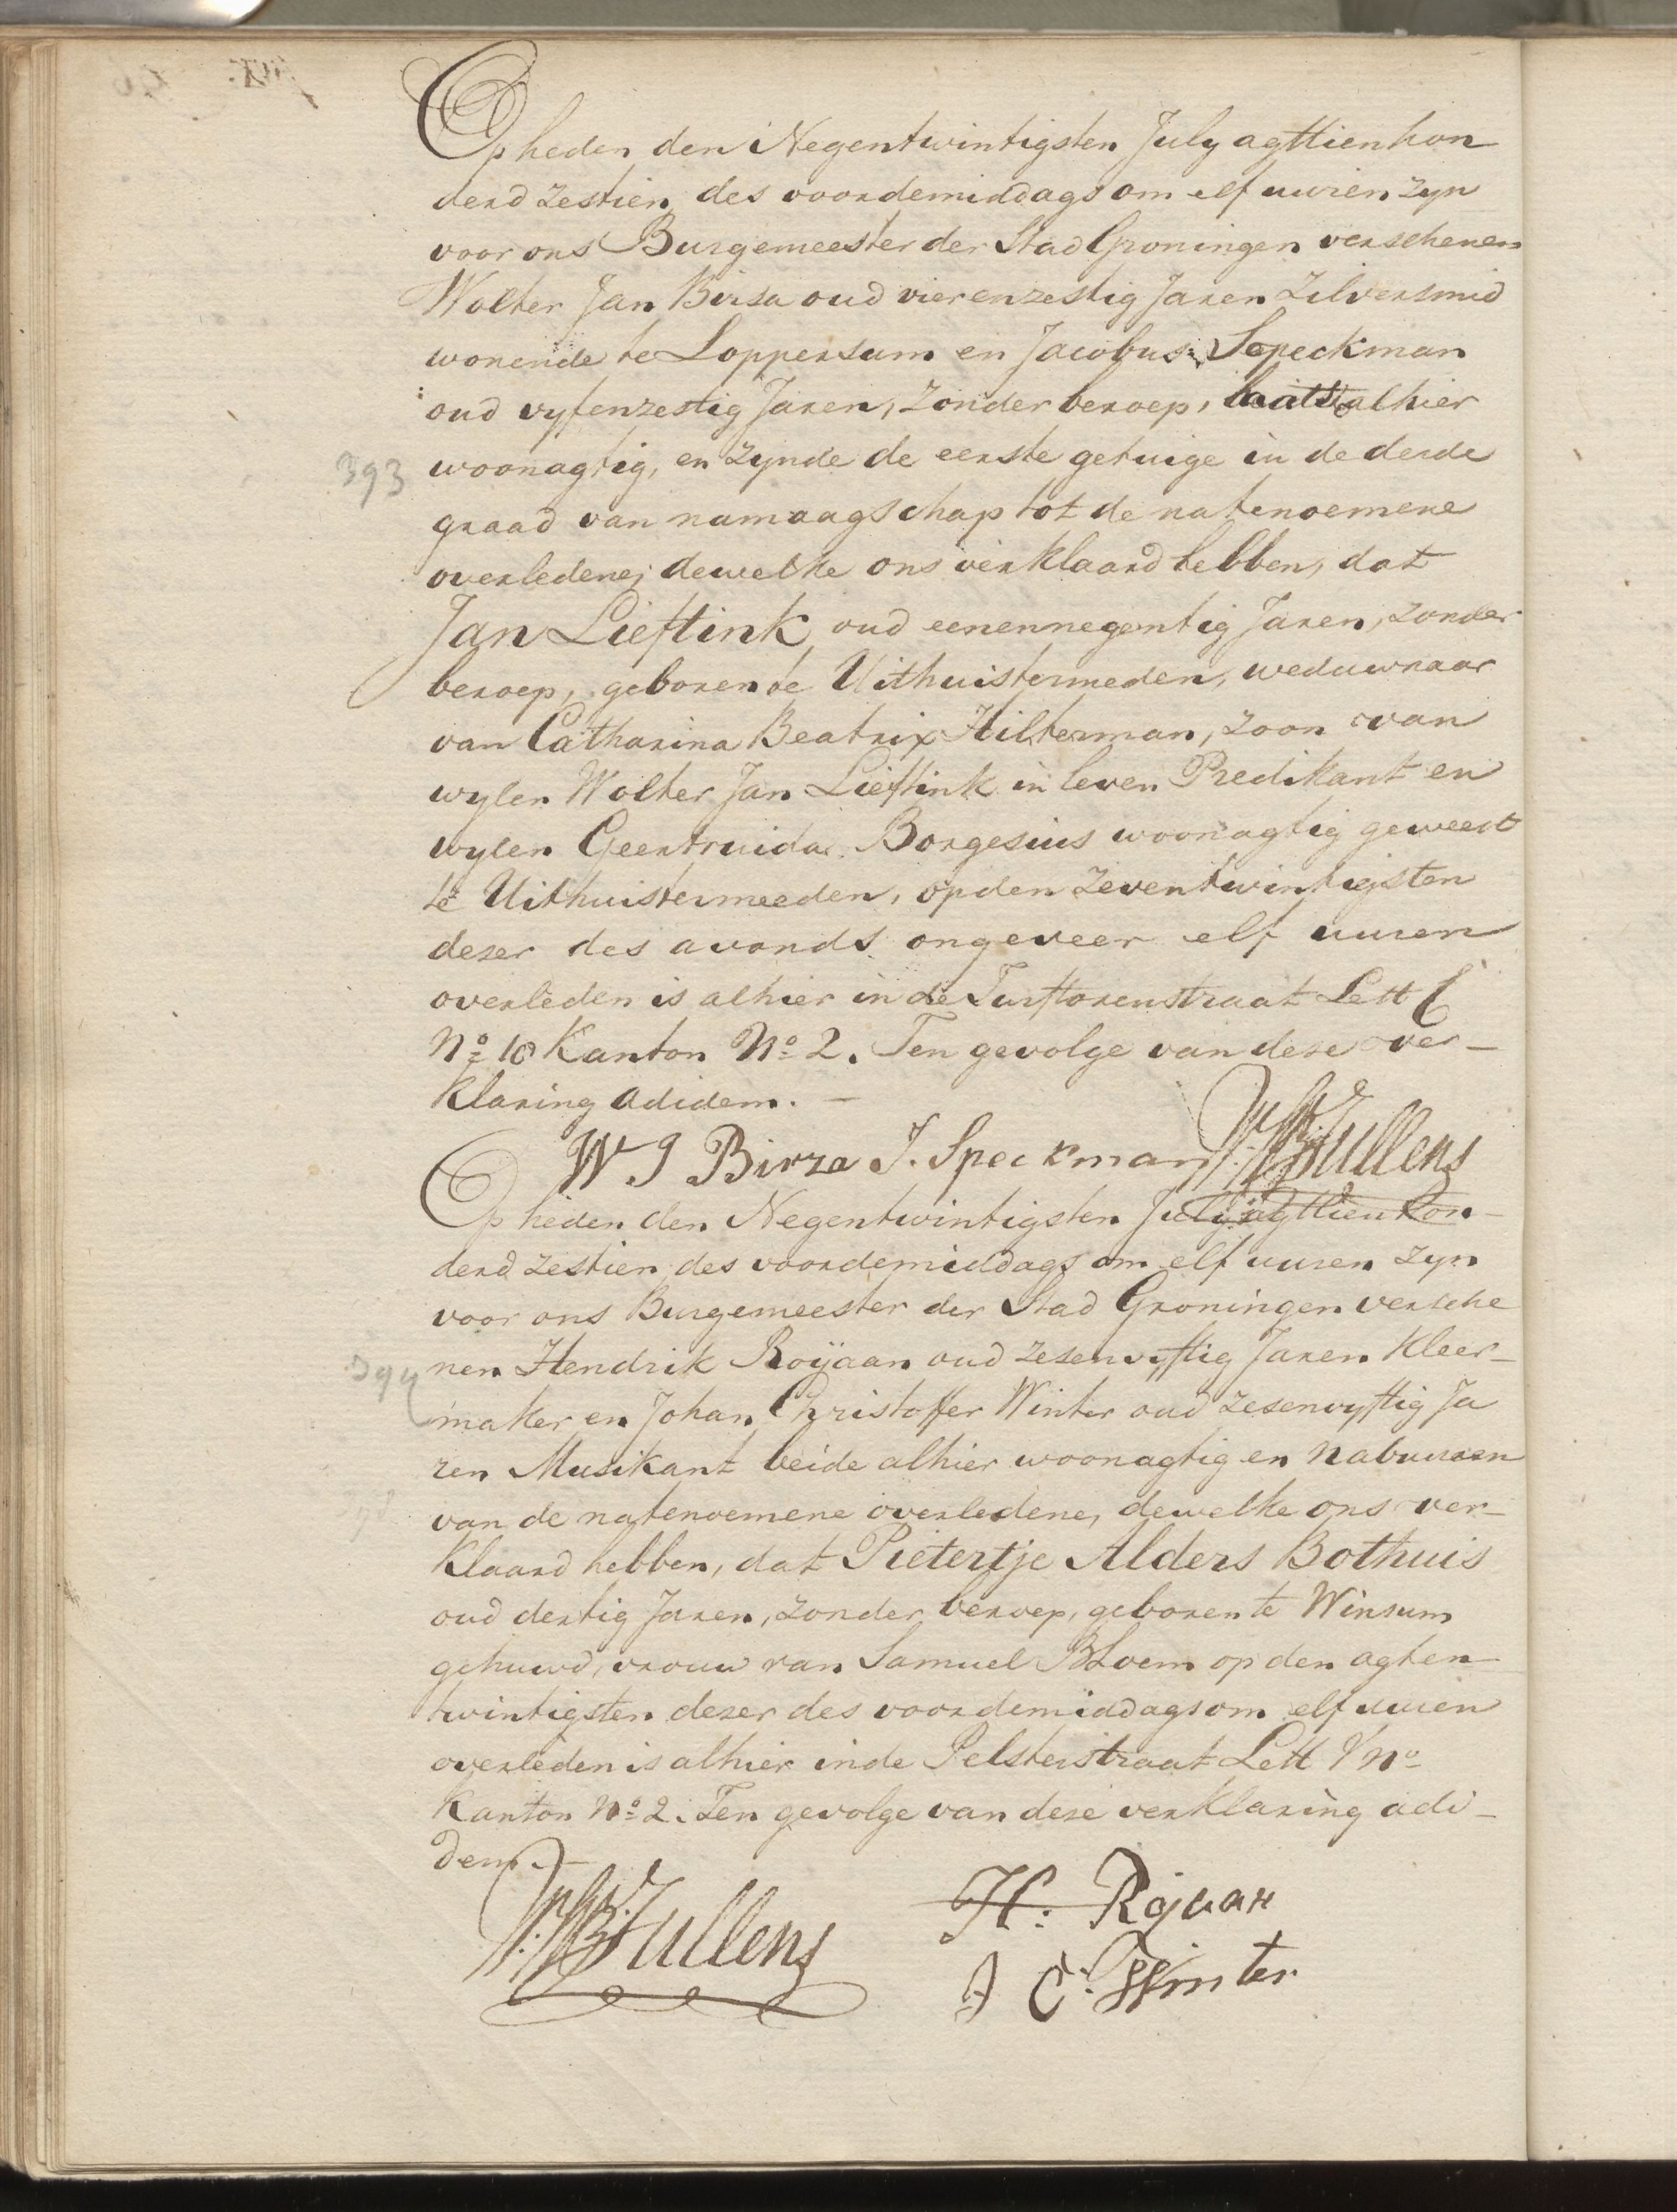 Op heden den Negentwintigsten July agttienhon
derd zestien, des voordemiddags om elf uuren zyn
voor ons Burgemeester der Stad Groningen verschenen
Wolter Jan Birsa oud vierenzestig Jaren Zilversmid
wonende te Loppersum en Jacobus Speckman
oud vyfenzestig Jaren, zonder beroep, laatste alhier
393
woonagtig, en zynde de eerste getuige in de derde
graad van namaagschap tot de natenoemene
overledene, dewelke ons verklaard hebben, dat
Jan Lieftink oud eenennegentig Jaren, zonder
beroep, geboren te Uithuistermeden, weduwnaar
van Catharina Beatrix Hilterman, zoon van
wylen Wolter Jan Lieftink in leven Predikant en
wylen Geertruida Borgesius woonagtig geweest
te Uithuistermeeden, op den zeventwintigsten
dezer des avonds ongeveer elf uuren
overleden is alhier in de Turftorenstraat Lett C
No 10 Kanton No 2. Ten gevolge van deze ver-
klaring adidem. -
W J Birza J. Speckman
Op heden den Negentwintigsten July agttienhon-
derd zestien des voordemiddags om elf uuren zyn
voor ons Burgemeester der Stad Groningen versche
394
nen Hendrik Roÿaan oud zesenvyftig Jaren Kleer-
maker en Johan Christoffer Winter oud zesenvyftig Ja
ren Musikant beide alhier woonagtig en nabuuren
van de natenoemene overledene, dewelke ons ver-
klaard hebben, dat Pietertje Alders Bothuis
oud dertig Jaren, zonder beroep, geboren te Winsum
gehuwd, vrouw van Samuel Bloem op den agten-
twintigsten dezer des voordemiddags om elf uuren
overleden is alhier in de Pelsterstraat Lett No
Kanton No 2. Ten gevolge van deze verklaring adi-
dem. -
H. Rojaan
J C. Winter